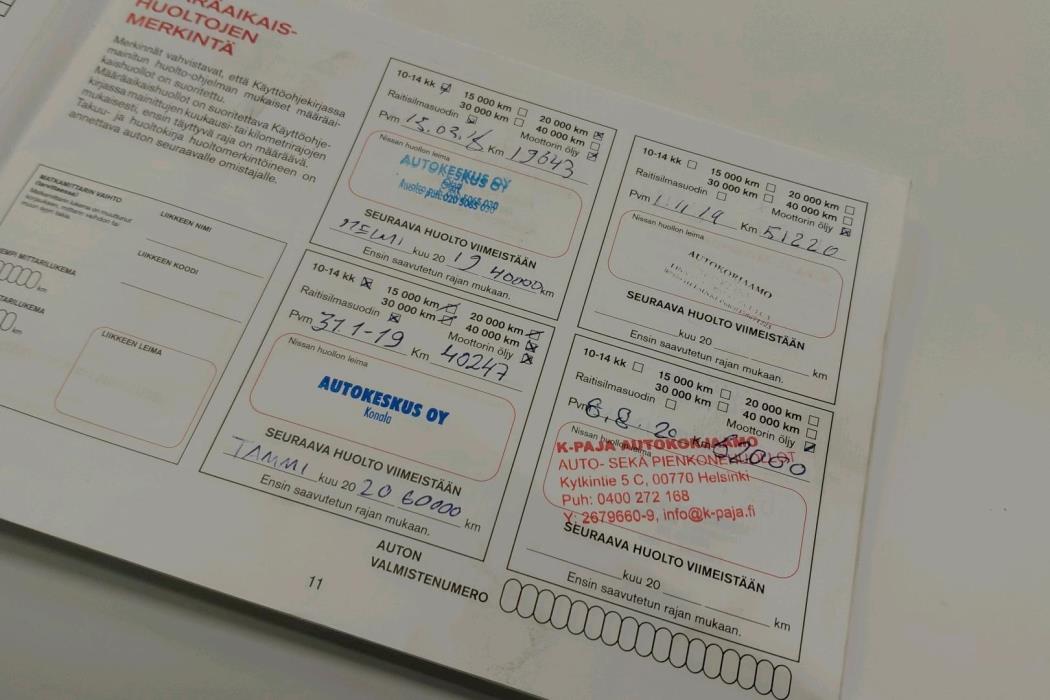 RÄAIKAIS-
HUOLTOJEN
MERKINTÄ
Merkinnät vahvistavat, että Käyttöohjekirjassa
mainitun huolto-ohjelman mukaiset määräai-
kaishuollot on suoritettu.
Määräaikaishuollot on suoritettava Käyttöohje-
kirjassa mainittujen kuukausi- tai kilometrirajojen
mukaisesti, ensin täyttyvä raja on määräävä.
Takuu- ja huoltokirja huoltomerkintöineen on
annettava auton seuraavalle omistajalle.
MATKAMITTARIN VAIHTO
(tarvittaessa)
LIIKKEEN NIMI
LIIKKEEN KOODI
EMPI MITTARILUKEMA
km
TARILUKEMA
km
LIIKKEEN LEIMA
10-14 kk 15 000 km 20 000 km
30 000 km 40 000 km
Raitisilmasuodin Moottorin öljy
Pvm 15.03.18 Km 19643
Nissan huollon leima
AUTOKESKUS OY
SEURAAVA HUOLTO VIIMEISTÄÄN
HELMI kuu 20 19 40000 km
Ensin saavutetun rajan mukaan.
10-14 kk 15 000 km 20 000 km
30 000 km 40 000 km
Raitisilmasuodin Moottorin öljy
Pvm 31.1-19 Km 40247
Nissan huollon leima
AUTOKESKUS OY
Konala
SEURAAVA HUOLTO VIIMEISTÄÄN
TAMMI kuu 20 20 60000 km
Ensin saavutetun rajan mukaan.
10-14 kk 15 000 km 20 000 km
30 000 km 40 000 km
Raitisilmasuodin Moottorin öljy
Pvm 1.11.19 Km 51220
Nissan huollon leima
AUTOKORJAAMO
SEURAAVA HUOLTO VIIMEISTÄÄN
kuu 20 km
Ensin saavutetun rajan mukaan.
10-14 kk 15 000 km 20 000 km
30 000 km 40 000 km
Raitisilmasuodin Moottorin öljy
Pvm 6.8.20 Km 62000
Nissan huollon leima
K-PAJA AUTOKORJAAMO
AUTO- SEKÄ PIENKONEHUOLLOT
Kytkintie 5 C, 00770 Helsinki
Puh: 0400 272 168
Y: 2679660-9, info@k-paja.fi
SEURAAVA HUOLTO VIIMEISTÄÄN
kuu 20 km
Ensin saavutetun rajan mukaan.
AUTON
VALMISTENUMERO
11